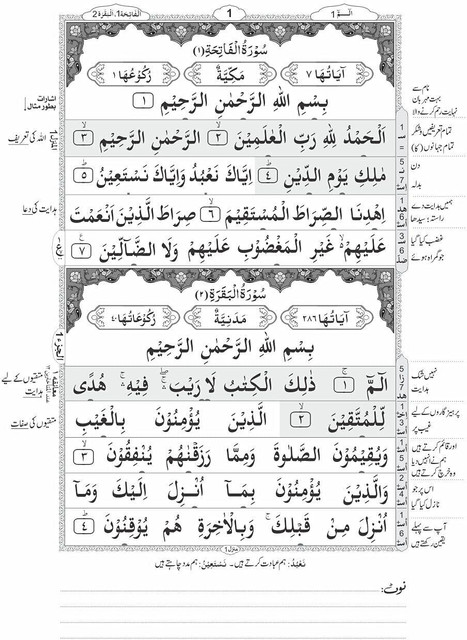 الٓـمّٓ 1
1
الفاتحة 1، البقرة 2
سُوْرَةُ الْفَاتِحَةِ (۱)
اٰيَاتُهَا ٧
مَكِّيَّةٌ
رُكُوْعُهَا ١
بِسْمِ اللّٰهِ الرَّحْمٰنِ الرَّحِيْمِ ١
اَلْحَمْدُ لِلّٰهِ رَبِّ الْعٰلَمِيْنَ ٢ الرَّحْمٰنِ الرَّحِيْمِ ٣
مٰلِكِ يَوْمِ الدِّيْنِ ٤ اِيَّاكَ نَعْبُدُ وَاِيَّاكَ نَسْتَعِيْنُ ٥
اِهْدِنَا الصِّرَاطَ الْمُسْتَقِيْمَ ٦ صِرَاطَ الَّذِيْنَ اَنْعَمْتَ
عَلَيْهِمْ غَيْرِ الْمَغْضُوْبِ عَلَيْهِمْ وَلَا الضَّآلِّيْنَ ٧
نام سے
بہت مہربان
نہایت رحم کرنے والا
تمام تعریفیں، شکر
تمام جہانوں (کا)
دن
بدلہ
ہمیں ہدایت دے
راستہ، سیدھا
غضب کیا گیا
جو گمراہ ہوئے
اشارات
بطور مثال
اللہ کی تعریف
ہدایت کی دعا
سُوْرَةُ الْبَقَرَةِ (۲)
اٰيَاتُهَا ٢٨٦
مَدَنِيَّةٌ
رُكُوْعَاتُهَا ٤٠
بِسْمِ اللّٰهِ الرَّحْمٰنِ الرَّحِيْمِ
الٓمّٓ ١ ذٰلِكَ الْكِتٰبُ لَا رَيْبَ ۛ فِيْهِ ۛ هُدًى
لِّلْمُتَّقِيْنَ ٢ الَّذِيْنَ يُؤْمِنُوْنَ بِالْغَيْبِ
وَيُقِيْمُوْنَ الصَّلٰوةَ وَمِمَّا رَزَقْنٰهُمْ يُنْفِقُوْنَ ٣
وَالَّذِيْنَ يُؤْمِنُوْنَ بِمَآ اُنْزِلَ اِلَيْكَ وَمَآ
اُنْزِلَ مِنْ قَبْلِكَ ۚ وَبِالْاٰخِرَةِ هُمْ يُوْقِنُوْنَ ٤
نہیں شک
ہدایت
پرہیزگاروں کے لیے
غیب پر
اور قائم کرتے ہیں
ہم نے انہیں دیا
وہ خرچ کرتے ہیں
اس پر جو
نازل کیا گیا
آپ سے پہلے
یقین رکھتے ہیں
الجزء ١
متقیوں کے لیے
ہدایت
متقیوں کی صفات
منزل 1
نَعْبُدُ: ہم عبادت کرتے ہیں۔ نَسْتَعِيْنُ: ہم مدد چاہتے ہیں
نوٹ: